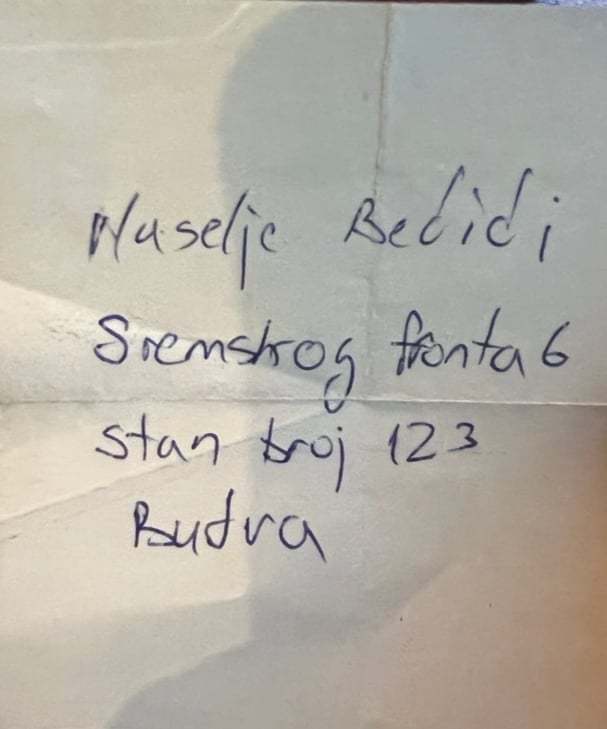 Naselje Bečići
Sremskog fronta 6
stan broj 123
Budva